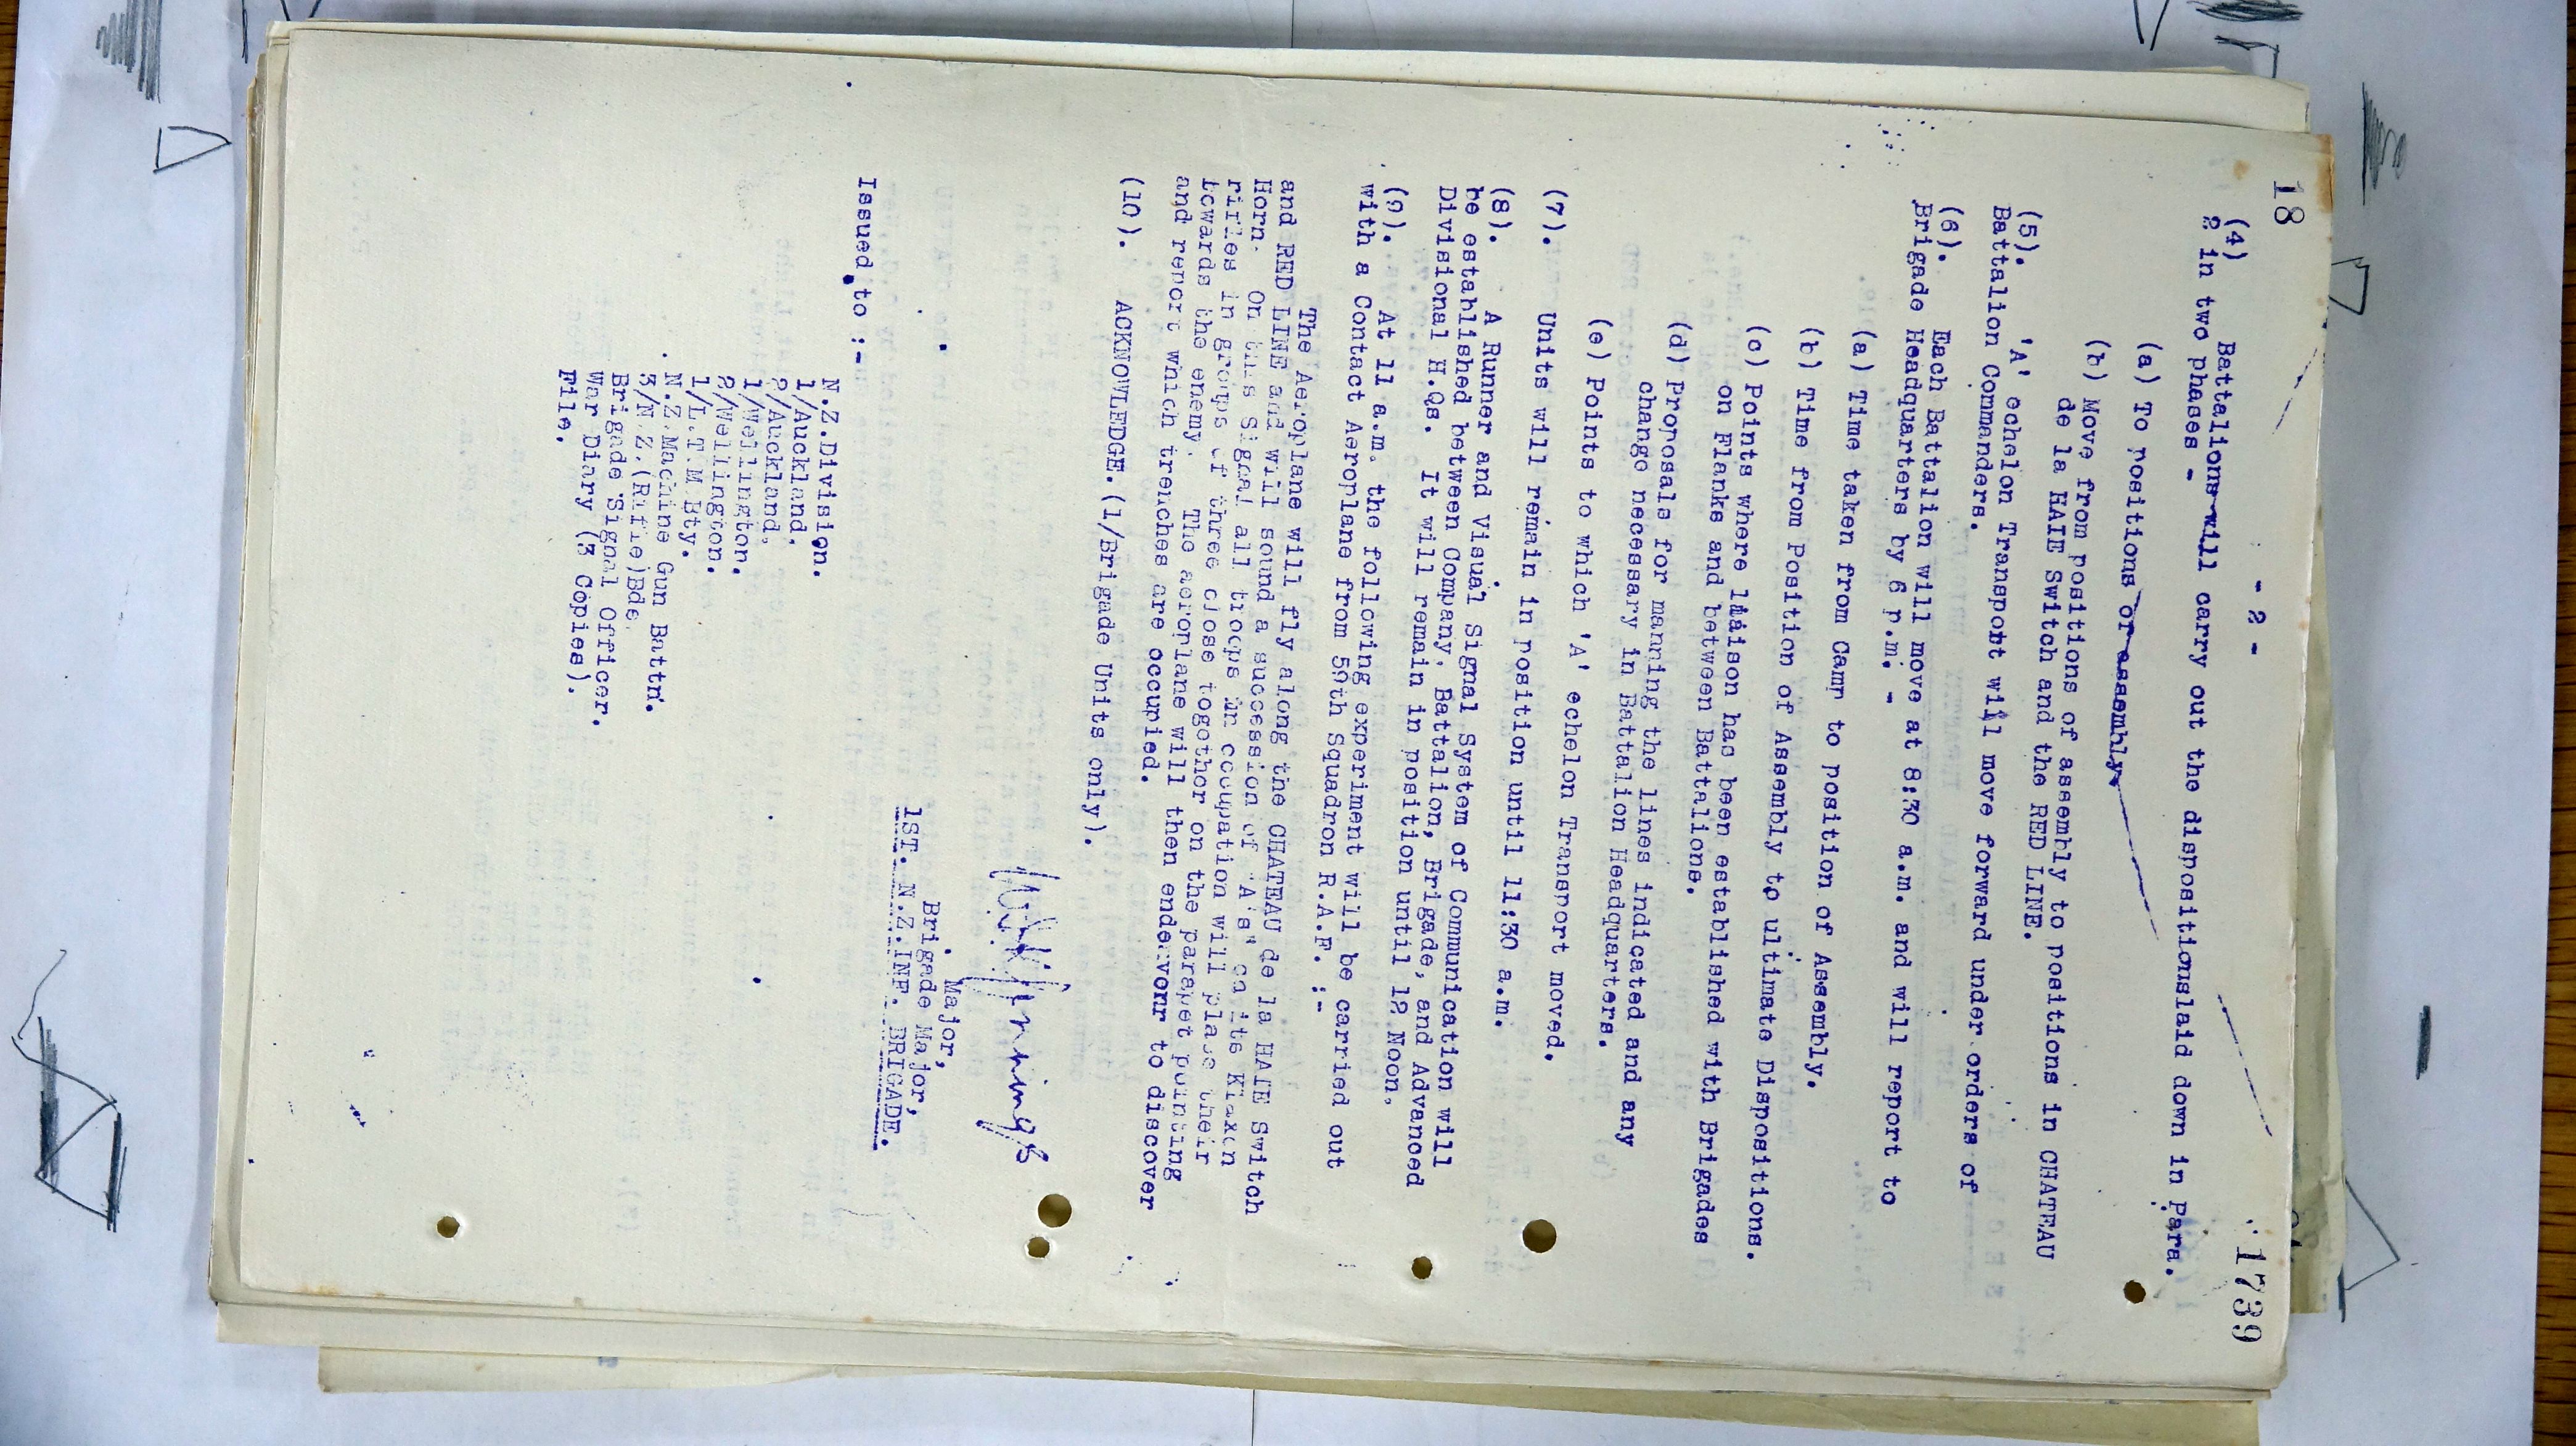 18
1739
- 2 -
(4) Battalions will carry out the dispositionslaid down in Para.
2 in two phases -
(a) To positions or assembly
(b) Move from positions of assembly to positions in CHATEAU
de la HAIE Switch and the RED LINE.
(5). 'A' echelon Transport will move forward under orders of
Battalion Commanders.
(6). Each Battalion will move at 8:30 a.m. and will report to
Brigade Headquarters by 6 p.m. -
(a) Time taken from Camp to position of Assembly.
(b) Time from Position of Assembly to ultimate Dispositions.
(c) Points where liaison has been established with Brigades
on Flanks and between Battalions.
(d) Proposals for manning the lines indicated and any
change necessary in Battalion Headquarters.
(e) Points to which 'A' echelon Transport moved.
(7). Units will remain in position until 11:30 a.m.
(8). A Runner and Visual Signal System of Communication will
be established between Company, Battalion, Brigade, and Advanced
Divisional H.Qs. It will remain in position until 12 Noon.
(9). At 11 a.m. the following experiment will be carried out
with a Contact Aeroplane from 59th Squadron R.A.F. :-
The Aeroplane will fly along the CHATEAU de la HAIE Switch
and RED LINE and will sound a succession of "A's" on its Klaxon
Horn. On this Signal all troops in occupation will place their
rifles in groups of three close together on the parapet pointing
towards the enemy. The aeroplane will then endeavour to discover
and report which trenches are occupied.
(10). ACKNOWLEDGE.(1/Brigade Units only).
Major,
Brigade Major,
1ST. N.Z.INF. BRIGADE.
Issued to :-
N.Z.Division.
1/Auckland.
2/Auckland.
1/Wellington.
2/Wellington.
1/L.T M Bty.
N.Z.Machine Gun Battn.
3/N.Z.(Rifle)Bde.
Brigade Signal Officer.
War Diary (3 Copies).
File.